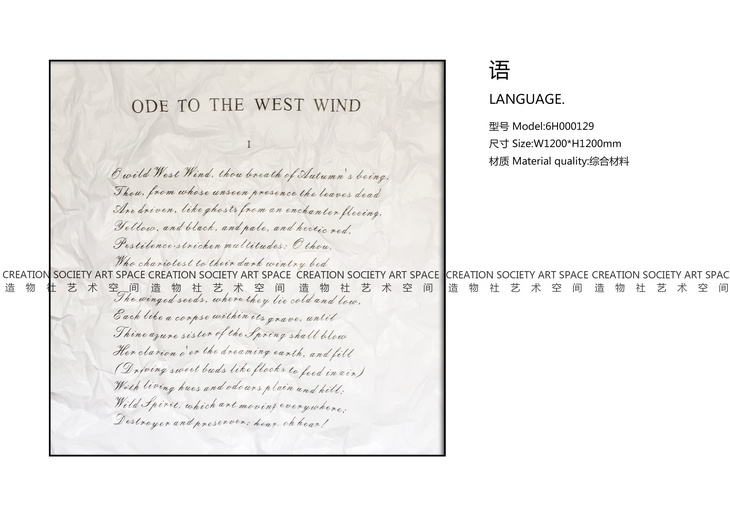 ODE TO THE WEST WIND
I
O wild West Wind, thou breath of Autumn's being,
Thou, from whose unseen presence the leaves dead
Are driven, like ghosts from an enchanter fleeing,
Yellow, and black, and pale, and hectic red,
Pestilence-stricken multitudes: O thou,
Who chariotest to their dark wintry bed
The winged seeds, where they lie cold and low,
Each like a corpse within its grave, until
Thine azure sister of the Spring shall blow
Her clarion o'er the dreaming earth, and fill
(Driving sweet buds like flocks to feed in air)
With living hues and odours plain and hill:
Wild Spirit, which art moving everywhere;
Destroyer and preserver; hear, oh hear!
语
LANGUAGE.
型号 Model:6H000129
尺寸 Size:W1200*H1200mm
材质 Material quality:综合材料
CREATION SOCIETY ART SPACE CREATION SOCIETY ART SPACE CREATION SOCIETY ART SPACE CREATION SOCIETY ART SPACE CREATION SOCIETY ART SPAC
造物社艺术空间 造物社艺术空间 造物社艺术空间 造物社艺术空间 造物社艺术空间